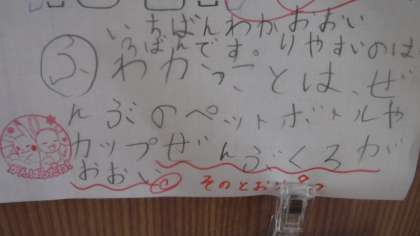 いちばんわかおおい
ろばんです。りやすいのは
ふ わかっことは、ぜ
んぶのペットボトルや
カップぜんぶくろが
おおい そのとおり